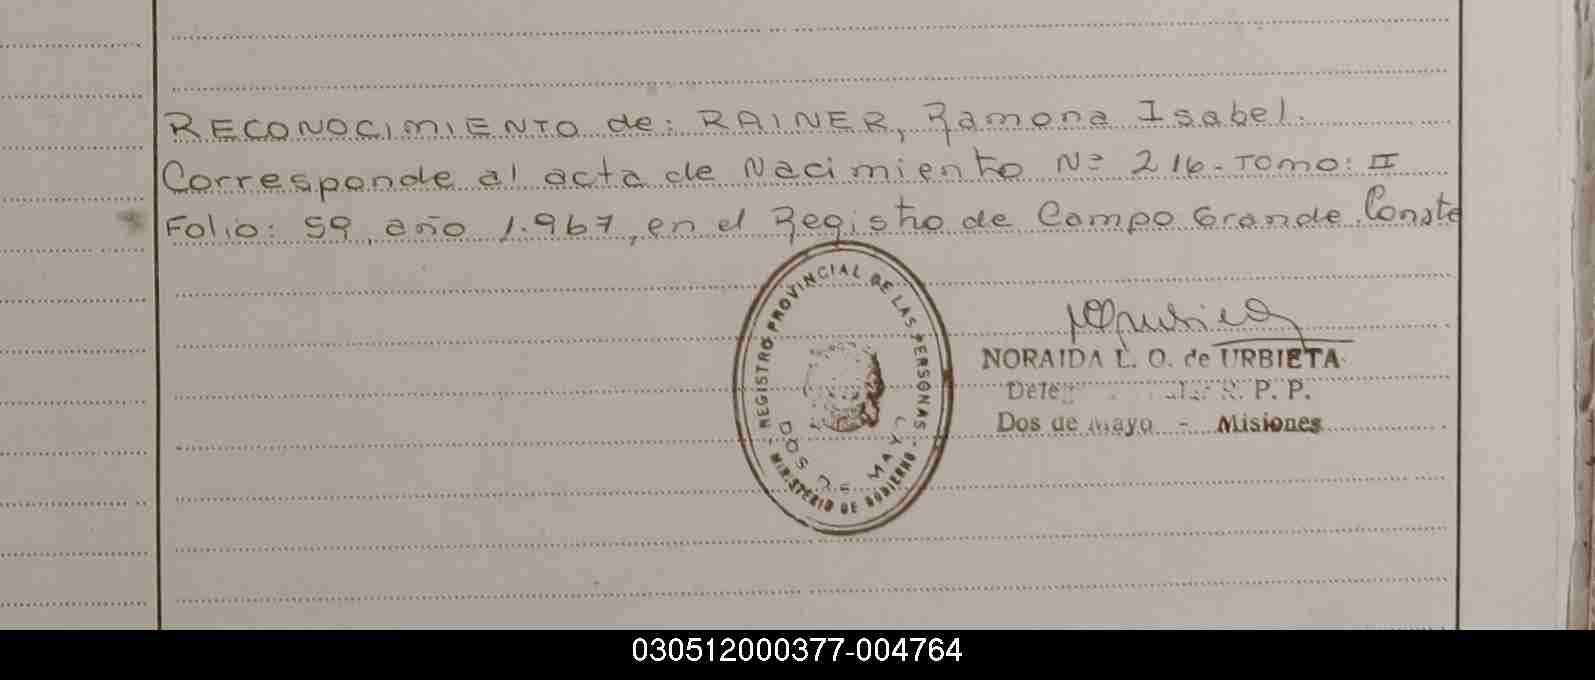 RECONOCIMIENTO de: RAINER, Ramona Isabel.
Corresponde al acta de Nacimiento Nº 216. Tomo: II
Folio: 59, año 1.967, en el Registro de Campo Grande. Conste
REGISTRO PROVINCIAL DE LAS PERSONAS
DOS DE MAYO
MINISTERIO DE GOBIERNO
NORAIDA L. O. de URBIETA
R. P. P.
Dos de Mayo - Misiones
030512000377-004764